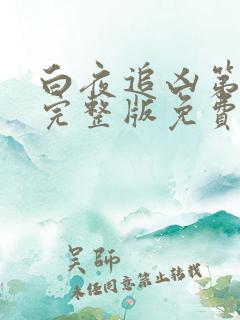 白夜追凶第
完整版免费
吴师
未经同意禁止转载